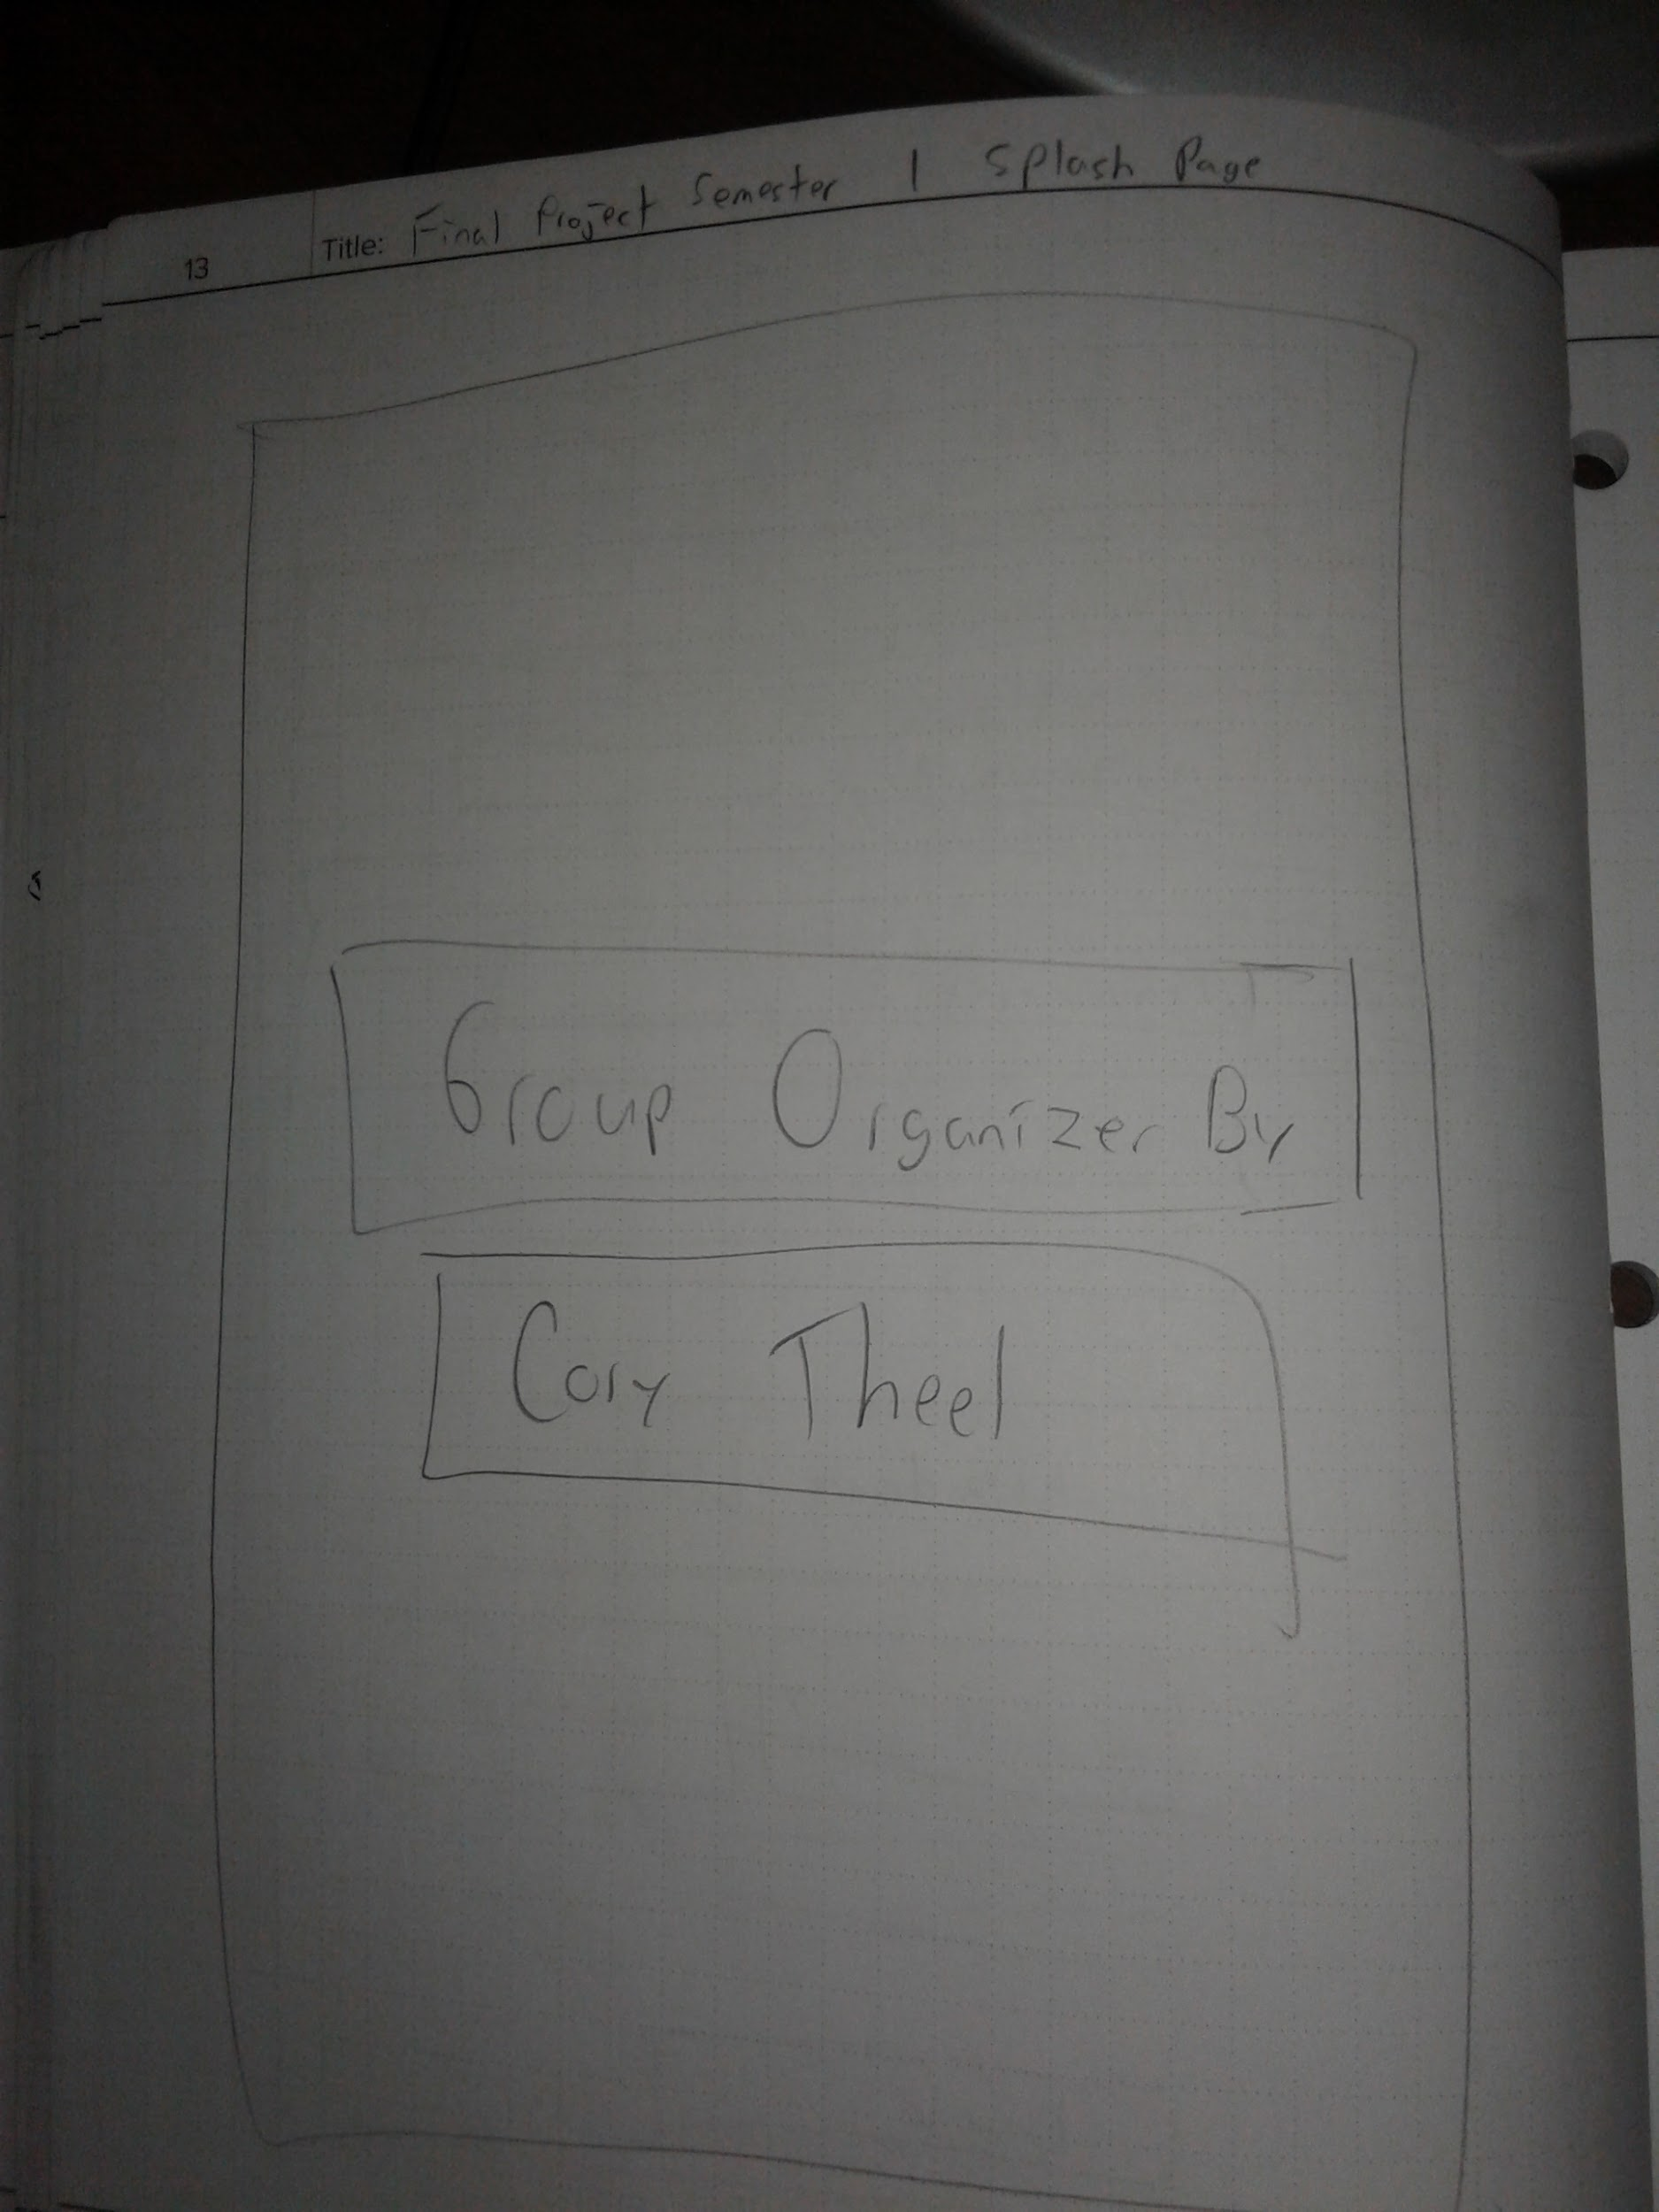 13 Title: Final Project Semester 1 Splash Page
Group Organizer By
Cory Theel